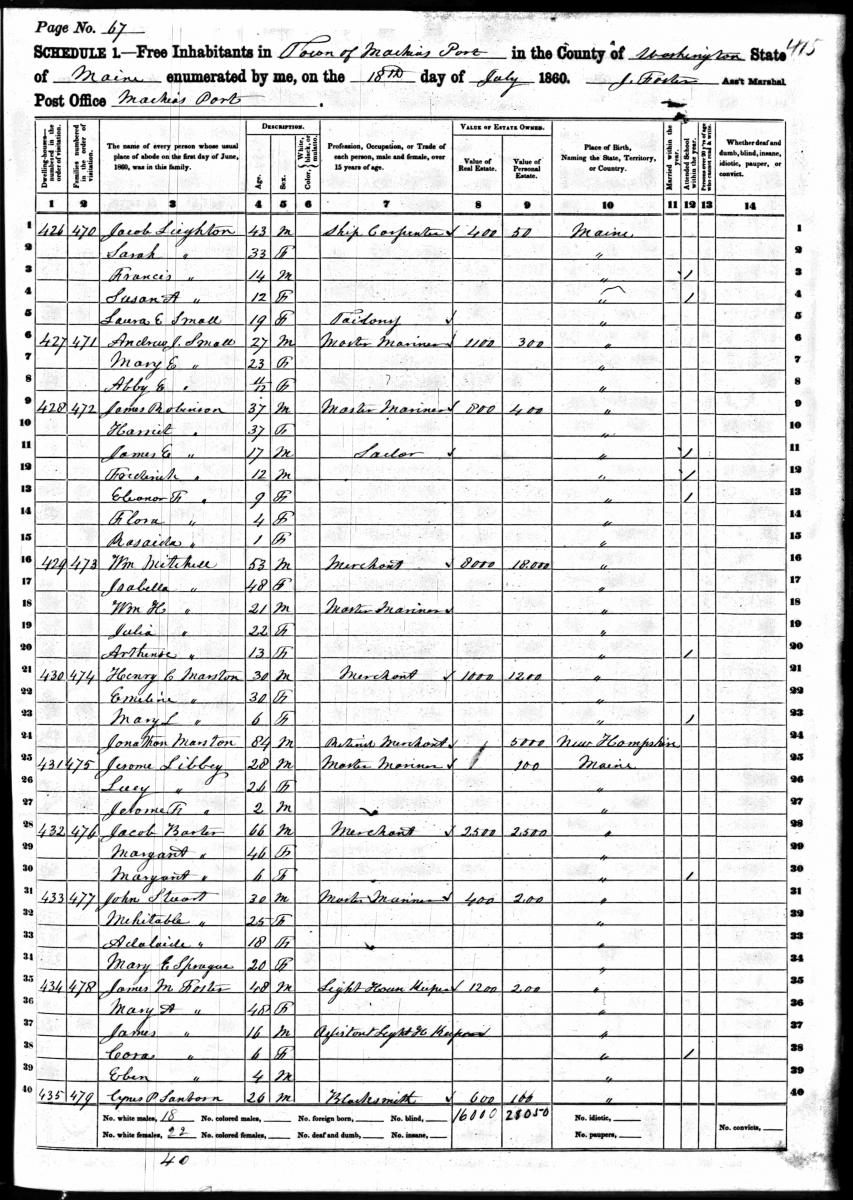 Page No. 67
415
SCHEDULE 1.—Free Inhabitants in Town of Machias Port in the County of Washington State
of Maine enumerated by me, on the 18th day of July 1860. J. Foster Ass't Marshal
Post Office Machias Port.
Dwelling-houses—numbered in the order of visitation. Families numbered in the order of visitation. The name of every person whose usual place of abode on the first day of June, 1860, was in this family. DESCRIPTION. Age. Sex. Color, White, black, or mulatto. Profession, Occupation, or Trade of each person, male and female, over 15 years of age. VALUE OF ESTATE OWNED. Value of Real Estate. Value of Personal Estate. Place of Birth, Naming the State, Territory, or Country. Married within the year. Attended School within the year. Persons over 20 y'rs of age who cannot read & write. Whether deaf and dumb, blind, insane, idiotic, pauper, or convict.
1 2 3 4 5 6 7 8 9 10 11 12 13 14
1 426 470 Jacob Lieghton 43 M Ship Carpenter 400 50 Maine 1
2 Sarah " 33 F " 2
3 Francis " 14 M " 1 3
4 Susan A " 12 F " 1 4
5 Laura E Small 19 F " 5
6 427 471 Andrew J. Small 27 M Master Mariner 1100 300 " 6
7 Mary E " 23 F " 7
8 Abby E " F " 8
9 428 472 James Robinson 37 M Master Mariner 800 400 " 9
10 Harriet 37 F " 10
11 James E " 17 M Sailor " 1 11
12 Frederick " 12 M " 1 12
13 Eleonor F " 9 F " 1 13
14 Flora " 4 F " 14
15 Rosaida " 1 F " 15
16 429 473 Wm Mitchell 53 M Merchant 8000 18.000 " 16
17 Isabella " 48 F " 17
18 Wm H " 21 M Master Mariner " 18
19 Julia " 22 F " 19
20 Arthinse " 13 F " 1 20
21 430 474 Henry C Marston 30 M Merchant 1000 1200 " 21
22 Emeline " 30 F " 22
23 Mary L " 6 F " 1 23
24 Jonathon Marston 84 M Retired Merchant 5000 New Hampshire 24
25 431 475 Jerome Libbey 28 M Master Mariner 100 Maine 25
26 Lucy " 26 F " 26
27 Jerome F " 2 M " 27
28 432 476 Jacob 66 M Merchant 2500 2,500 " 28
29 Margaret " 46 F " 29
30 Margaret " 6 F " 1 30
31 433 477 John Stuart 30 M Master Mariner 400 200 " 31
32 Mehitable " 25 F " 32
33 Adalaide " 18 F " 33
34 Mary E Sprague 20 F " 34
35 434 478 James M Foster 48 M Light House Keeper 1200 200 " 35
36 Mary A " 48 F " 36
37 James " 16 M Assistant Light H Keeper " 37
38 Cora " 6 F " 1 38
39 Eben " 4 M " 39
40 435 479 Cyrus P Sanborn 26 M Blacksmith 600 100 " 40
No. white males, 18 No. colored males, No. foreign born, No. blind, 16000 28050 No. idiotic,
No. white females, 22 No. colored females, No. deaf and dumb, No. insane, No. paupers, No. convicts,
40